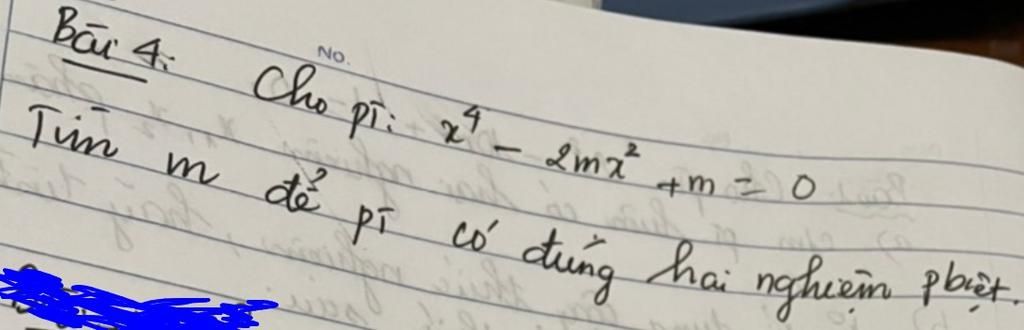 No.
Bài 4: Cho pT: x⁴ - 2mx² + m = 0
Tìm m để pT có đúng hai nghiệm pbiệt.